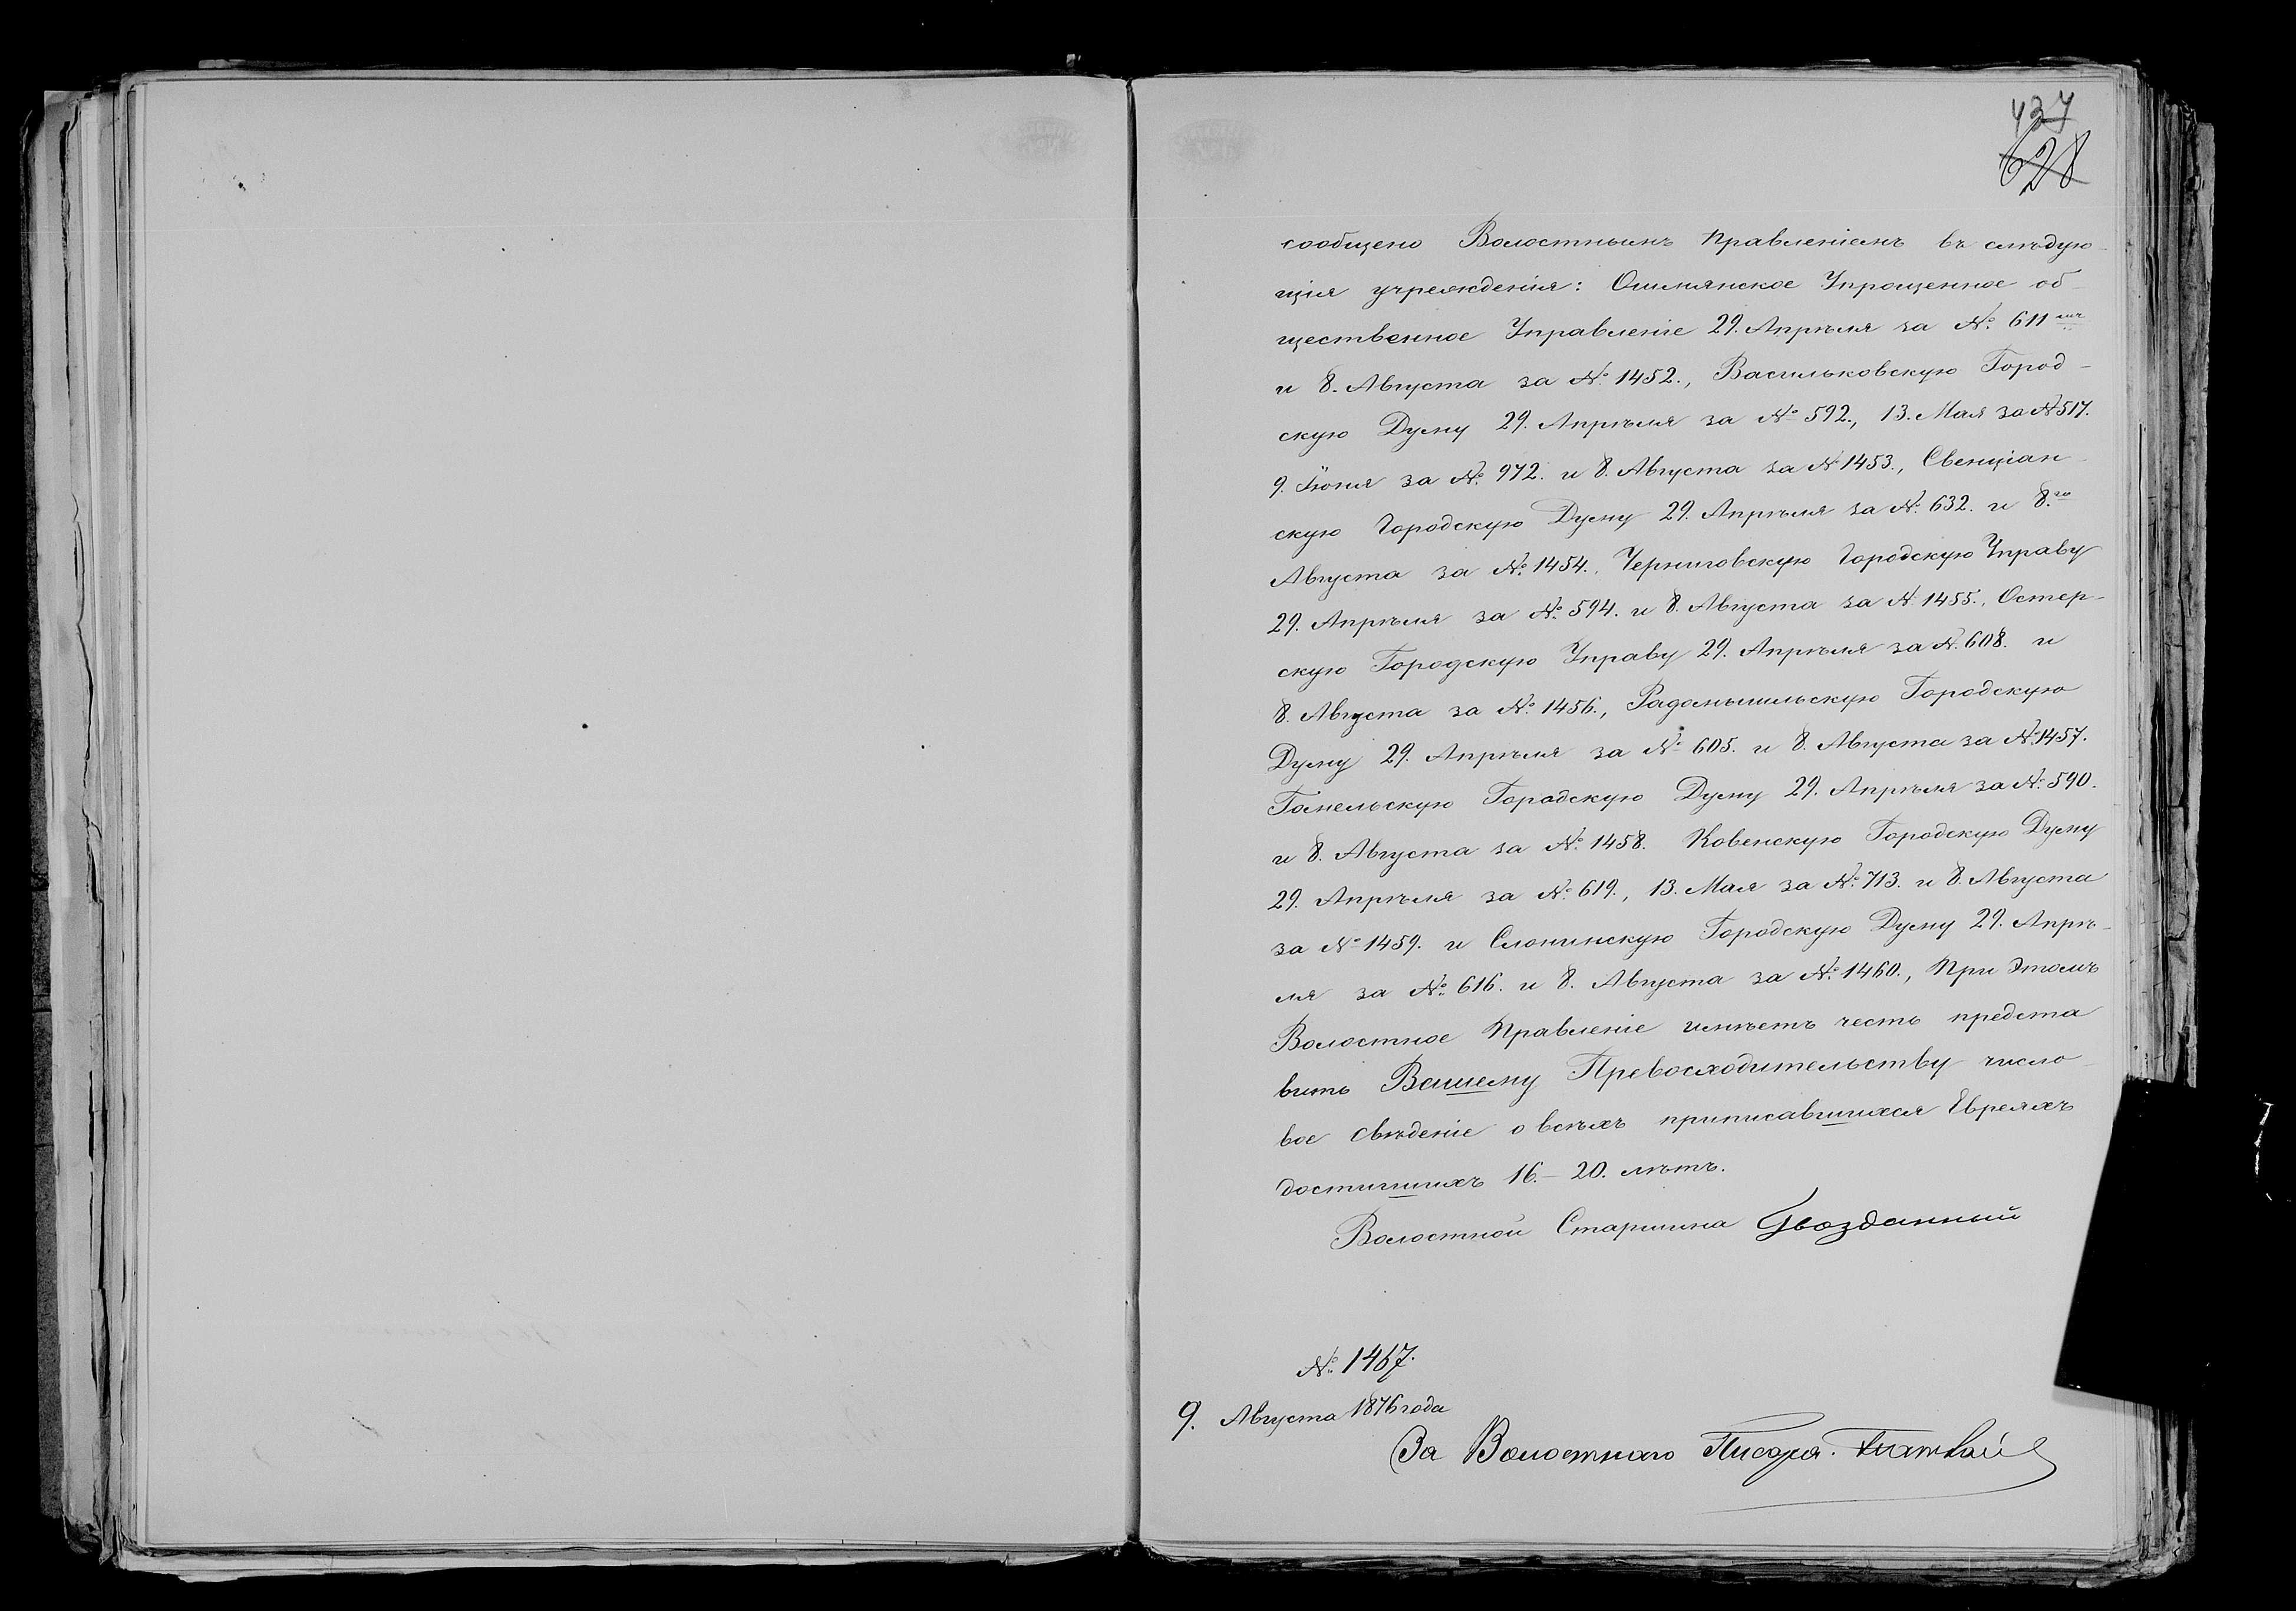 437
628
сообщено Волостнымъ Правленіемъ въ слѣдую-
щія учрежденія: Ошмянское Упрощенное об-
щественное Управленіе 29. Апрѣля за №. 611мъ
и 8. Августа за №. 1452., Васильковскую Город-
скую Думу 29. Апрѣля за № 592., 13. Мая за № 517.
9. Іюня за №. 972. и 8. Августа за № 1453., Свенціан-
скую Городскую Думу 29. Апрѣля за №. 632. и 8.го
Августа за №. 1454., Черниговскую Городскую Управу
29. Апрѣля за №. 594. и 8. Августа за № 1455., Остер-
скую Городскую Управу 29. Апрѣля за №. 608. и
8. Августа за №. 1456., Радомышльскую Городскую
Думу 29. Апрѣля за № 605. и 8. Августа за №. 1457.
Гомельскую Городскую Думу 29. Апрѣля за №. 590.
и 8. Августа за №. 1458. Ковенскую Городскую Думу
29. Апрѣля за №. 619., 13. Мая за №. 713. и 8. Августа
за № 1459. и Слонимскую Городскую Думу 29. Апрѣ-
ля за №. 616. и 8. Августа за №. 1460., При этомъ
Волостное Правленіе имѣетъ честь предста
вить Вашему Превосходительству число-
вое свѣденіе о всѣхъ приписавшихся Евреяхъ
достигшихъ 16.– 20. лѣтъ.
Волостной Старшина Гвозданный
№. 1467.
9. Августа 1876 года
За Волостнаго Писаря.